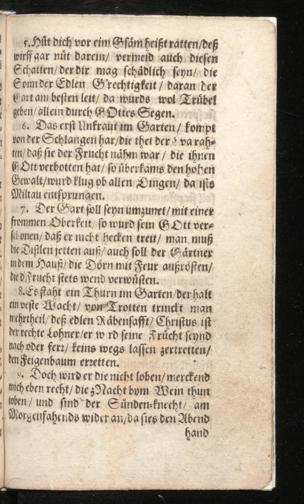 5. Hüt dich vor eim Gsäm heißt ratten/deß
wirff gar nüt darein/ vermeid auch diesen
Schatten/der dir mag schädlich seyn/ die
Sonn der Edlen G'rechtigkeit/ daran der
Gart am besten leit/ da wurds wol Trübel
geben/allein durch GOttes Segen.
6. Das erst Unkraut im Garten/ kompt
von der Schlangen har/die thet der rah-
ten/daß sie der Frucht nähm war/ die ihnen
GOtt verbotten hat/ so überkams den hohen
Gewalt/wurd klug ob allen Dingen/ da ists
Miltau entsprungen.
7. Der Gart soll seyn umzunet/mit einer
frommen Oberkeit/ so wurd sein GOtt ver-
sühnen/daß er nicht hecken treit/ man muß
die Distlen jetten auß/auch soll der Gärtner
in dem Hauß/ die Dörn mit Feur außrösten/
die d'Frucht stets wend verwüsten.
8. Es staht ein Thurn im Garten/der halt
ein veste Wacht/ von Trotten trinckt man
mehrtheil/deß edlen Räbensafft/ Christus ist
der rechte Lohner/er w rd seine Frücht seynd
nach oder ferr/ keins wegs lassen zertretten/
den Feigenbaum erretten.
9. Doch wird er die nicht loben/merckend
mich eben recht/die z'Nacht bym Wein thun
toben/ und sind der Sünden-knecht/ am
Morgen fahends wider an/da sies den Abend
hand